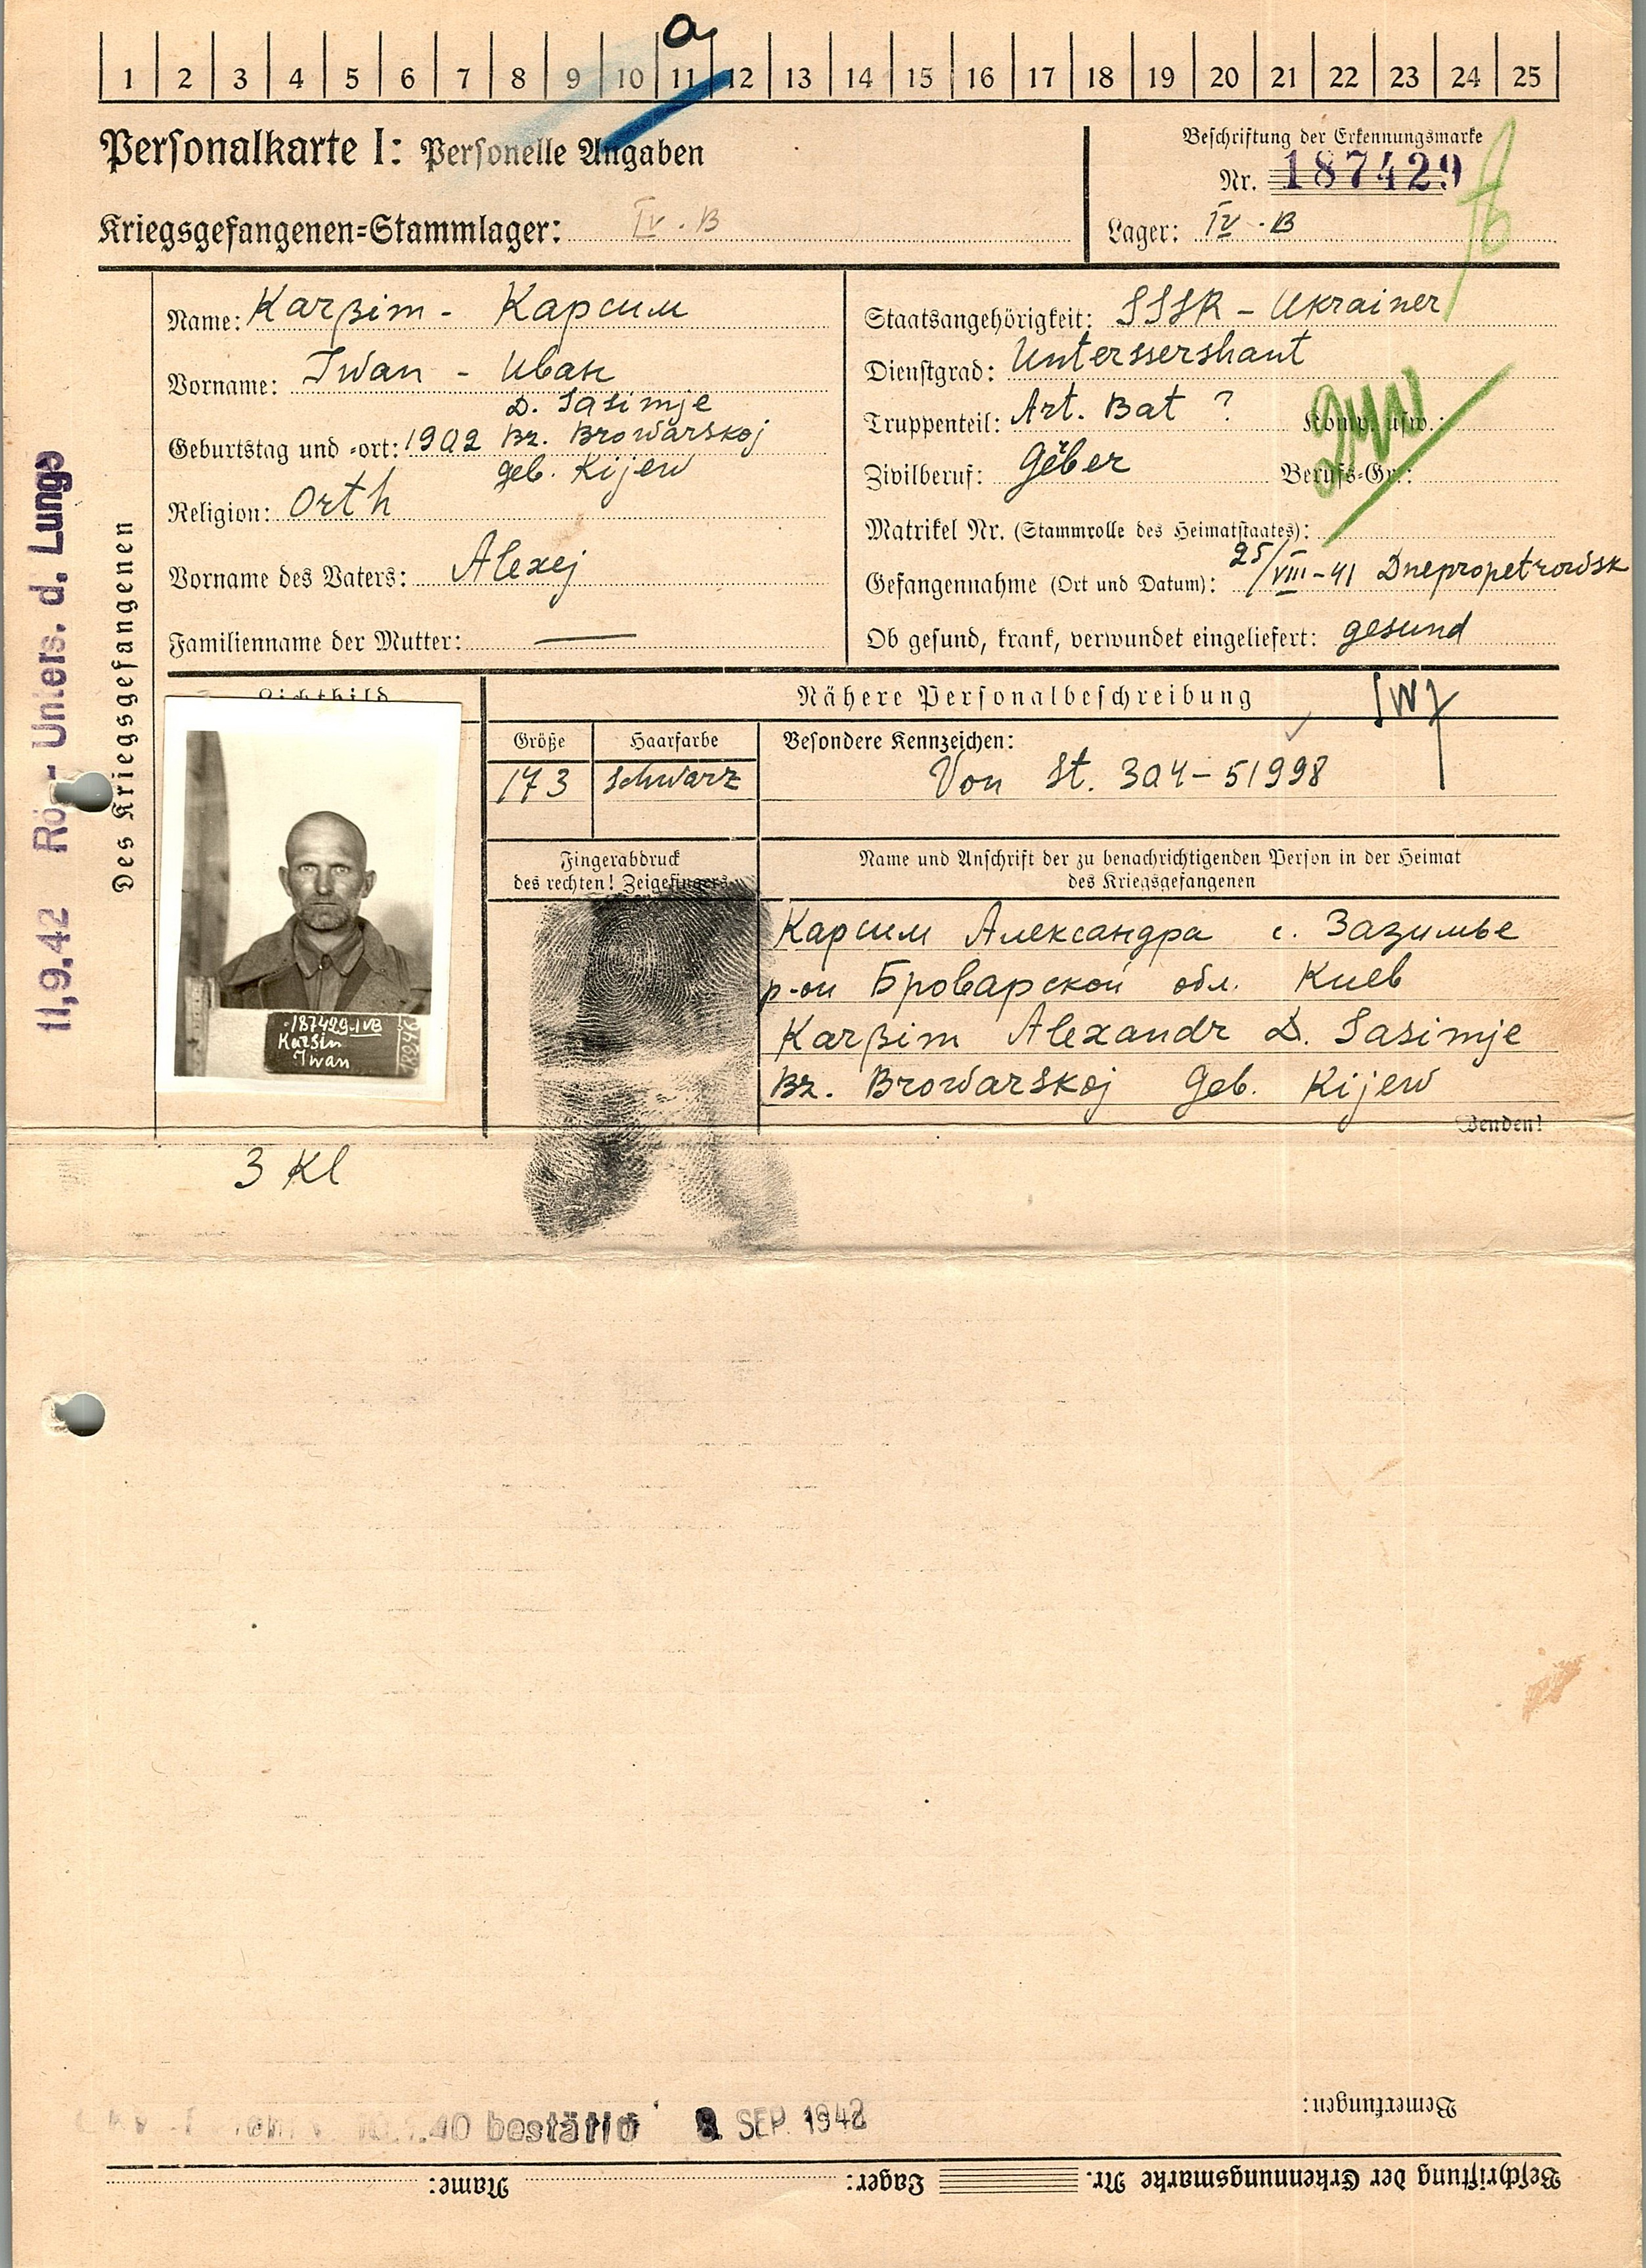 a
1 2 3 4 5 6 7 8 9 10 11 12 13 14 15 16 17 18 19 20 21 22 23 24 25
Personalkarte I: Personelle Angaben
Beschriftung der Erkennungsmarke
Nr. 187429
Kriegsgefangenen=Stammlager: IV . B
Lager: IV . B
Des Kriegsgefangenen
11,9.42 Rö - Unters. d. Lunge
Name: Karßim - Карсим
Vorname: Iwan - Иван
D. Sasimje
Geburtstag und =ort: 1902 Bz. Browarskoj
geb. Kijew
Religion: Orth
Vorname des Vaters: Alexej
Familienname der Mutter: —
Staatsangehörigkeit: SSSR - Ukrainer
Dienstgrad: Unterssershant
Truppenteil: Art. Bat ? Komp. usw.:
Zivilberuf: Gěber Berufs=Gr.:
Matrikel Nr. (Stammrolle des Heimatstaates):
Gefangennahme (Ort und Datum): 25/VIII-41 Dnepropetrowsk
Ob gesund, krank, verwundet eingeliefert: gesund
Lichtbild
Nähere Personalbeschreibung
Größe Haarfarbe Besondere Kennzeichen:
173 schwarz Von St. 304-51998
187429-IVB
Karsin
Iwan
Fingerabdruck
des rechten! Zeigefingers
Name und Anschrift der zu benachrichtigenden Person in der Heimat
des Kriegsgefangenen
Карсим Александра с. Зазимье
р-он Броварской обл. Киев
Karßim Alexandr D. Sasimje
Bz. Browarskoj Geb. Kijew
Wenden!
3 Kl
Bemerkungen:
bestätig SEP. 1942
Beschriftung der Erkennungsmarke Nr. Lager: Name: